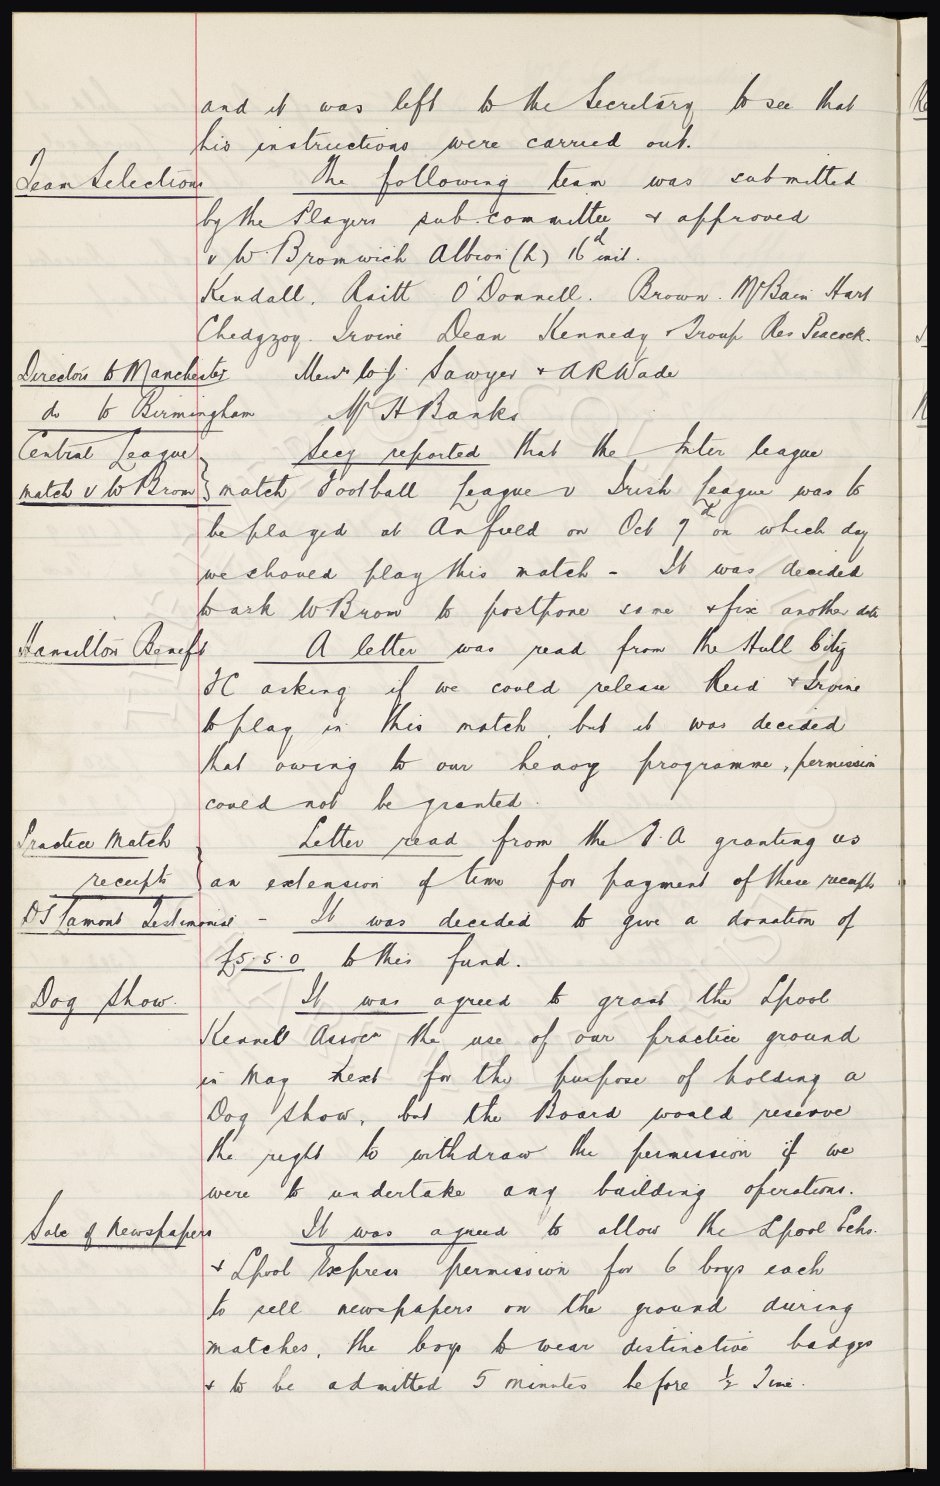 and it was left to the Secretary to see that
his instructions were carried out.
Team Selections The following team was submitted
by the Players sub-committee & approved
v W. Bromwich Albion (h) 16th inst.
Kendall. Raitt O'Donnell. Brown. McBain Hart
Chedgzoy. Irvine Dean Kennedy & Troup Res Peacock.
Directors to Manchester Messrs W.J. Sawyer & A R Wade
do to Birmingham Mr H Banks
Central League Secy reported that the Inter league
match v W Brom } match Football League v Irish League was to
be played at Anfield on Oct 9th on which day
we should play this match - It was decided
to ask W Brom to postpone same & fix another date
Hamilton Benefit A letter was read from the Hull City
FC asking if we could release Reid & Irvine
to play in this match, but it was decided
that owing to our heavy programme, permission
could not be granted.
Practice Match Letter read from the F.A granting us
receipts } an extension of time for payment of these receipts
DS Lamont Testimonial - It was decided to give a donation of
£5.5.0 to this fund.
Dog Show. It was agreed to grant the Lpool
Kennel Assocn the use of our practice ground
in May next for the purpose of holding a
Dog Show, but the Board would reserve
the right to withdraw the permission if we
were to undertake any building operations.
Sale of Newspapers It was agreed to allow the Lpool Echo.
& Lpool Express permission for 6 boys each
to sell newspapers on the ground during
matches, the boys to wear distinctive badges
& to be admitted 5 minutes before ½ Time.